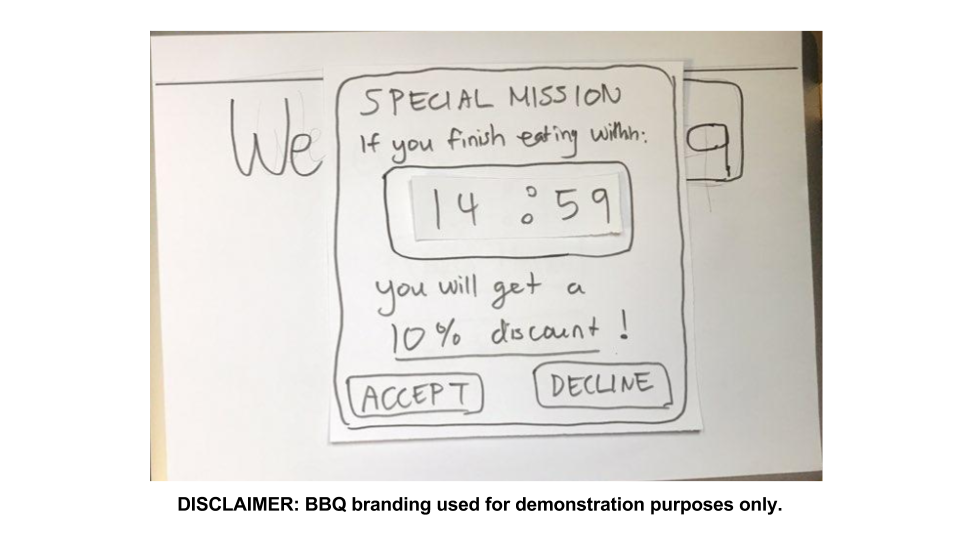 SPECIAL MISSION
If you finish eating withn:
We
q
14:59
you will get a
10% discount!
ACCEPT
DECLINE
DISCLAIMER: BBQ branding used for demonstration purposes only.